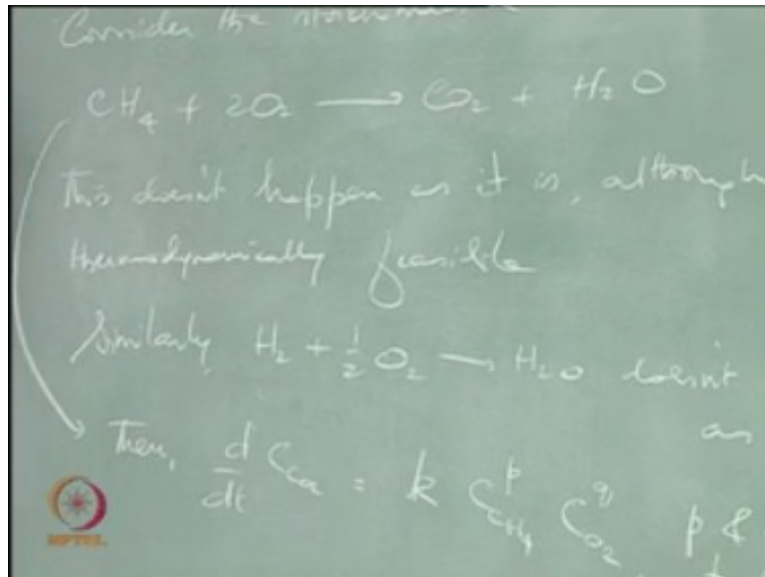 Consider the
CH₄ + 2O₂ → CO₂ + H₂O
This doesn't happen as it is, although
thermodynamically feasible
Similarly, H₂ + ½ O₂ → H₂O doesn't
as
Then, d/dt C_CO₂ = k C_CH₄^p C_O₂^q p &
NPTEL